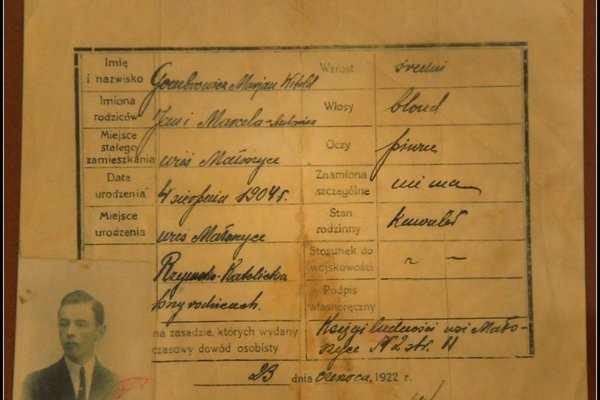 Imię
i nazwisko
Gombrowicz Marjan Witold
Imiona
rodziców
Jan i Marcela-Antonina
Miejsce
stałego
zamieszkania
wieś Małoszyce
Data
urodzenia
4 sierpnia 1904 r.
Miejsce
urodzenia
wieś Małoszyce
Rzymsko-Katolicka
przy rodzicach.
Wzrost
średni
Włosy
blond
Oczy
piwne
Znamiona
szczególne
nie ma
Stan
rodzinny
kawaler
Stosunek do
wojskowości
~ —
Podpis
własnoręczny
na zasadzie, których wydany
czasowy dowód osobisty
Księgi ludności wsi Mało-
szyce № 2 str. 11
23 dnia czerwca 1922 r.